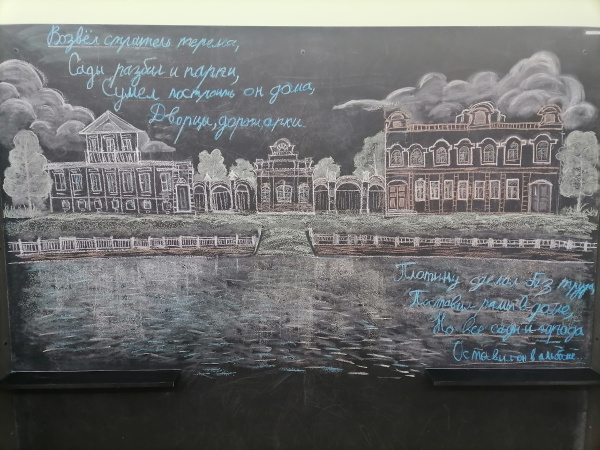 Возвёл строитель терема,
Сады разбил и парки,
Сумел построить он дома,
Дворцы, дорожки, арки
Плотину сделал без труда
Поставил в
Но все сады и города
Оставил он в альбоме.